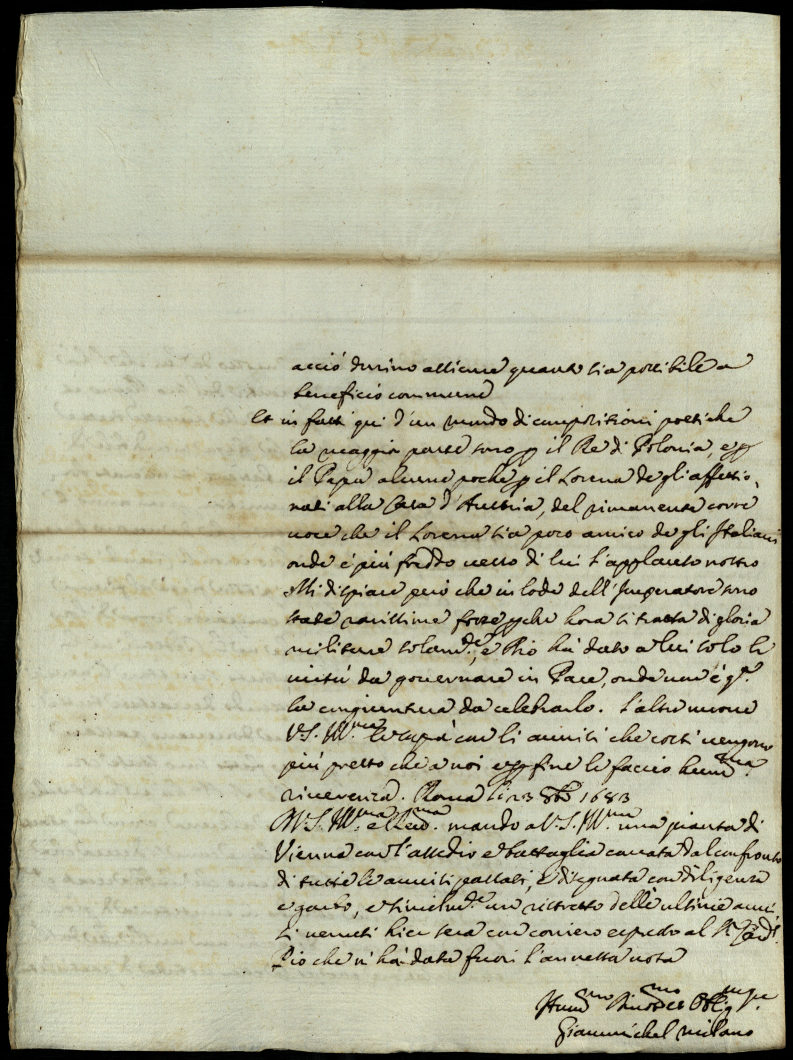 acciò durino assieme quanto sia possibile a
beneficio commune
Et in fatti qui d'un mondo di compositioni poetiche
la maggior parte sono p il Re di Polonia, e p
il Papa alcune poche p il Lorena de gli affettio-
nati alla Casa d'Austria, del rimanente corre
voce che il Lorena sia poco amico de gli Italiani
onde è più freddo verso di lui l'applauso nostro
Mi dispiace però che in lode dell'Imperatore sono
state rarissime forse pche hora si tratta di gloria
militare solam.te, e Dio hà dato a lui solo le
virtù da governare in Pace, onde non è q.ta
la congiuntura da celebrarlo. L'altre nuove
V.S. Ill.ma le saprà con li avvisi che costì vengono
più presto che a noi e p fine le faccio hum.ma
riverenza. Roma li 23 8bre 1683
Di V.S. Ill.ma e Rev.ma mando a V.S. Ill.ma una pianta di
Vienna con l'assedio e battaglia cavata dal confronto
di tutte le avvisi passati, e disegnata con diligenza
e garbo, e similm.te un ristretto delle ultime avvi-
si venuti hier sera con corriero espresso al S.r Card.l
Pio che n'hà data fuori l'annessa nota
Hum.mo Dev.mo et Obblig.mo
Giannichel Milano